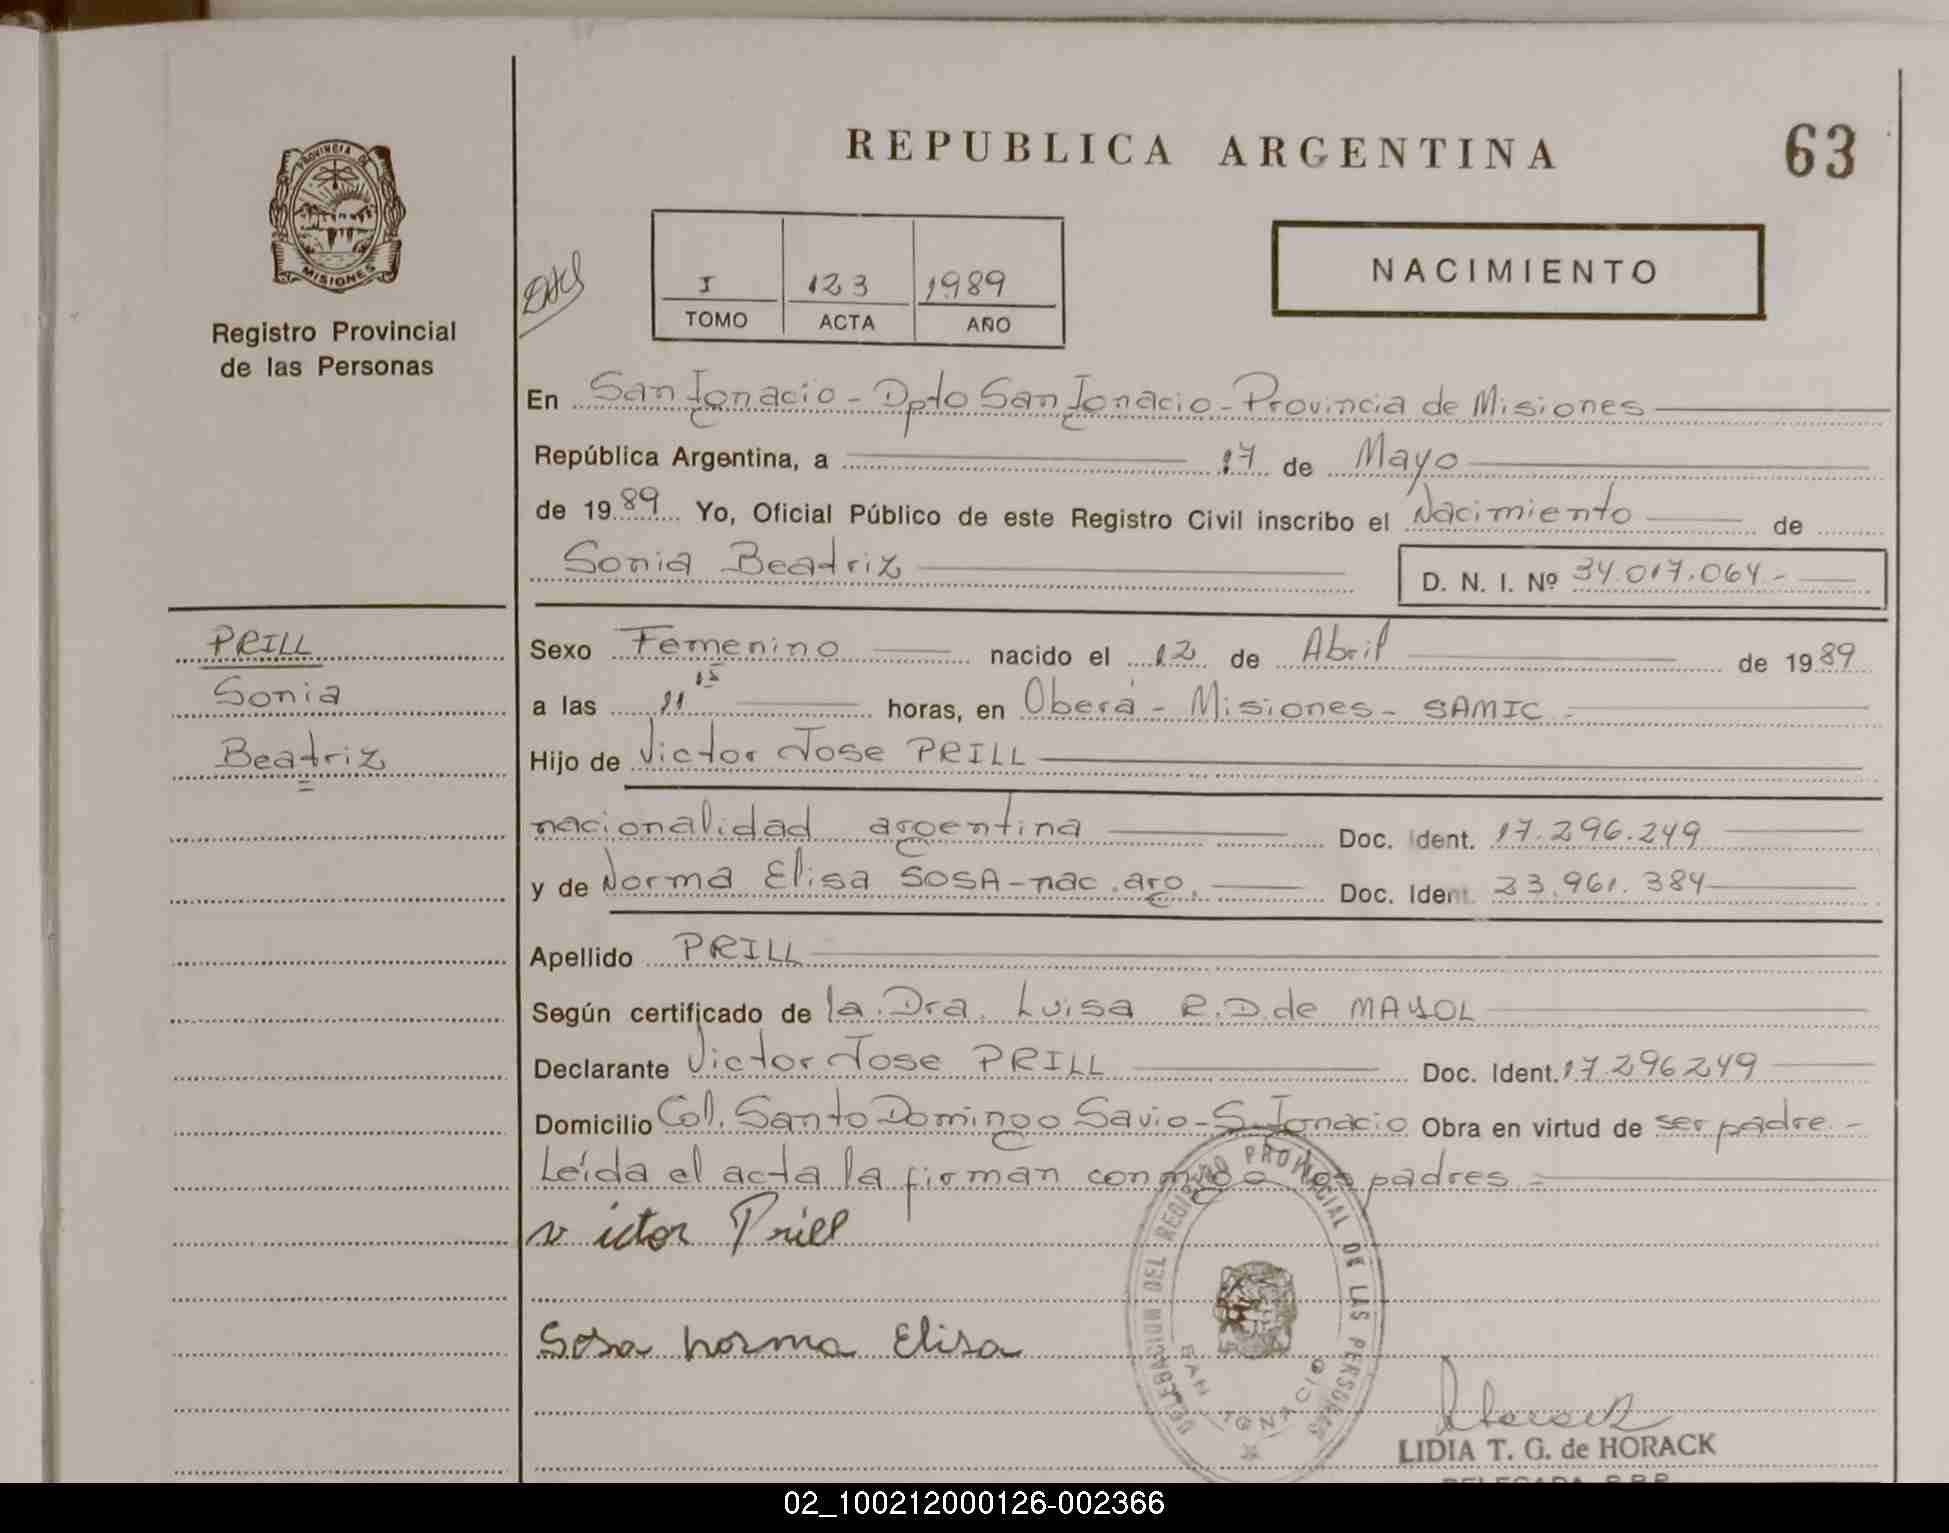 REPUBLICA ARGENTINA
63
PROVINCIA DE
MISIONES
Registro Provincial
de las Personas
I 123 1989
TOMO ACTA AÑO
NACIMIENTO
En San Ignacio - Dpto San Ignacio - Provincia de Misiones
República Argentina, a 17 de Mayo
de 1989 Yo, Oficial Público de este Registro Civil inscribo el Nacimiento de
Sonia Beatriz D. N. I. Nº 34.017.064.-
PRILL
Sonia
Beatriz
Sexo Femenino nacido el 12 de Abril de 1989
a las 11 15 horas, en Oberá - Misiones - SAMIC -
Hijo de Victor Jose PRILL
nacionalidad argentina Doc. Ident. 17.296.249
y de Norma Elisa SOSA - nac. arg. Doc. Ident. 23.961.384
Apellido PRILL
Según certificado de la Dra. Luisa R. D. de MAYOL
Declarante Victor Jose PRILL Doc. Ident. 17.296.249
Domicilio Col. Santo Domingo Savio - S. Ignacio Obra en virtud de ser padre -
Leída el acta la firman conmigo los padres -
Victor Prill
Sosa Norma Elisa
DELEGACION DEL REGISTRO PROVINCIAL DE LAS PERSONAS
SAN IGNACIO
LIDIA T. G. de HORACK
DELEGADA R.P.P.
02_100212000126-002366